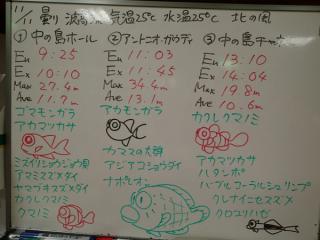 11/11 曇り 波高1m 気温25℃ 水温25℃ 北の風
① 中の島ホール
En 9:25
Ex 10:10
Max 27.4m
Ave 11.7m
ゴマモンガラ
アカマツカサ
ミズイリショウジョウ貝
アミメスズメダイ
ヤマブキスズメダイ
カクレクマノミ
クマノミ
② アントニオガウディ
En 11:03
Ex 11:45
Max 34.4m
Ave 13.1m
アカモンガラ
カマスの大群
アジアコショウダイ
ナポレオン
③ 中の島チャネル
En 13:10
Ex 14:04
Max 19.8m
Ave 10.6m
カクレクマノミ
アカマツカサ
ハタンポ
バブルコーラルシュリンプ
クレナイニセスズメ
クロユリハゼ